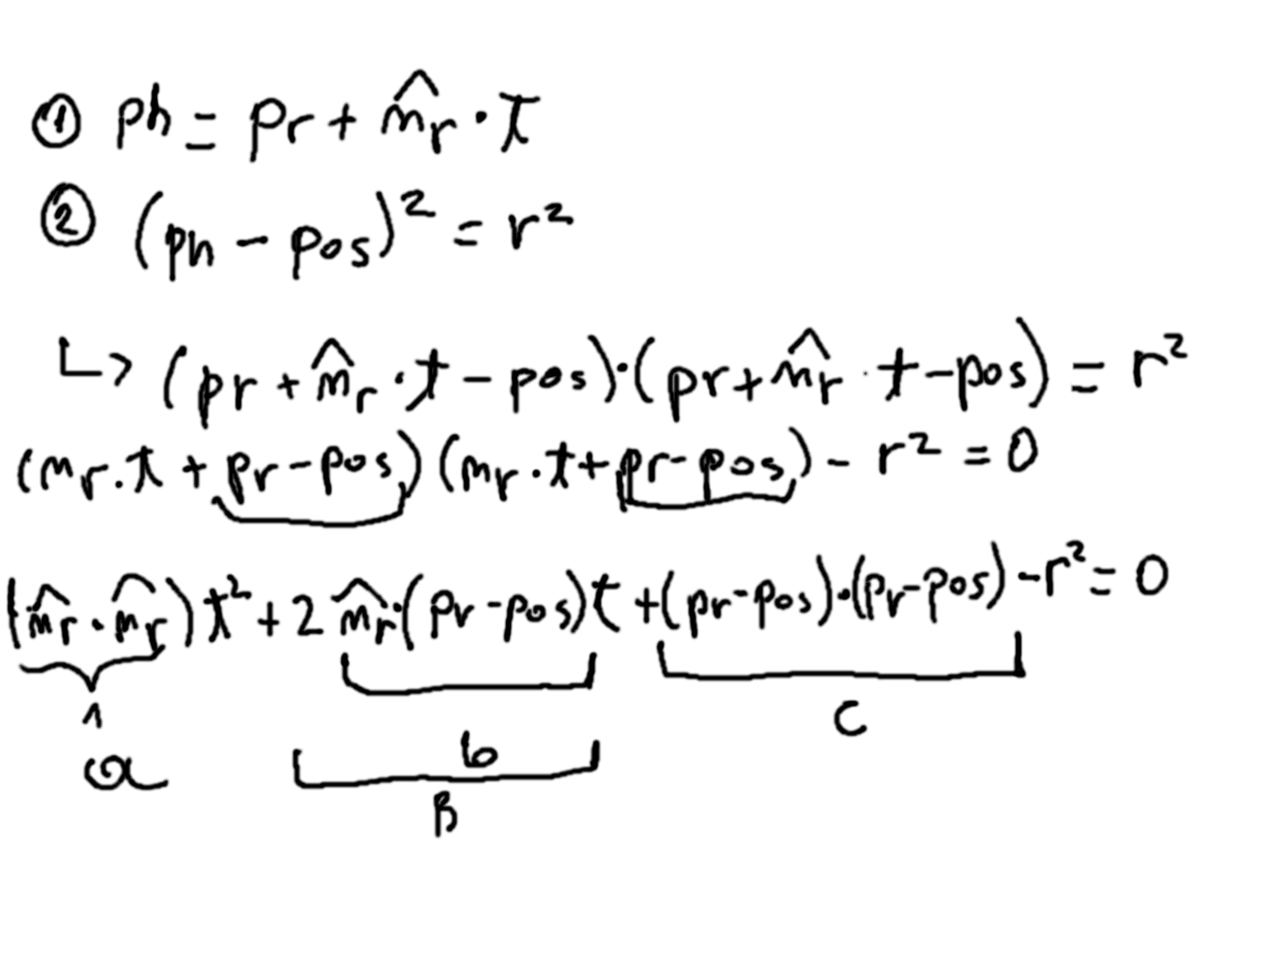 ① ph = pr + m̂r · t
② (ph - pos)² = r²
↳ (pr + m̂r · t - pos) · (pr + m̂r · t - pos) = r²
(mr · t + pr - pos) (mr · t + pr - pos) - r² = 0
(m̂r · m̂r) t² + 2 m̂r · (pr - pos) t + (pr - pos) · (pr - pos) - r² = 0
1
a
b
B
C